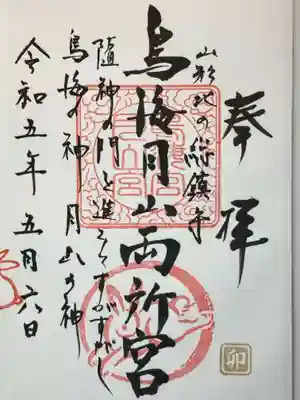 奉拝
山形北の総鎮守
鳥海月山両所宮
随神の門を進みてすがすがし
鳥海の神月山の神
令和五年五月六日
卯